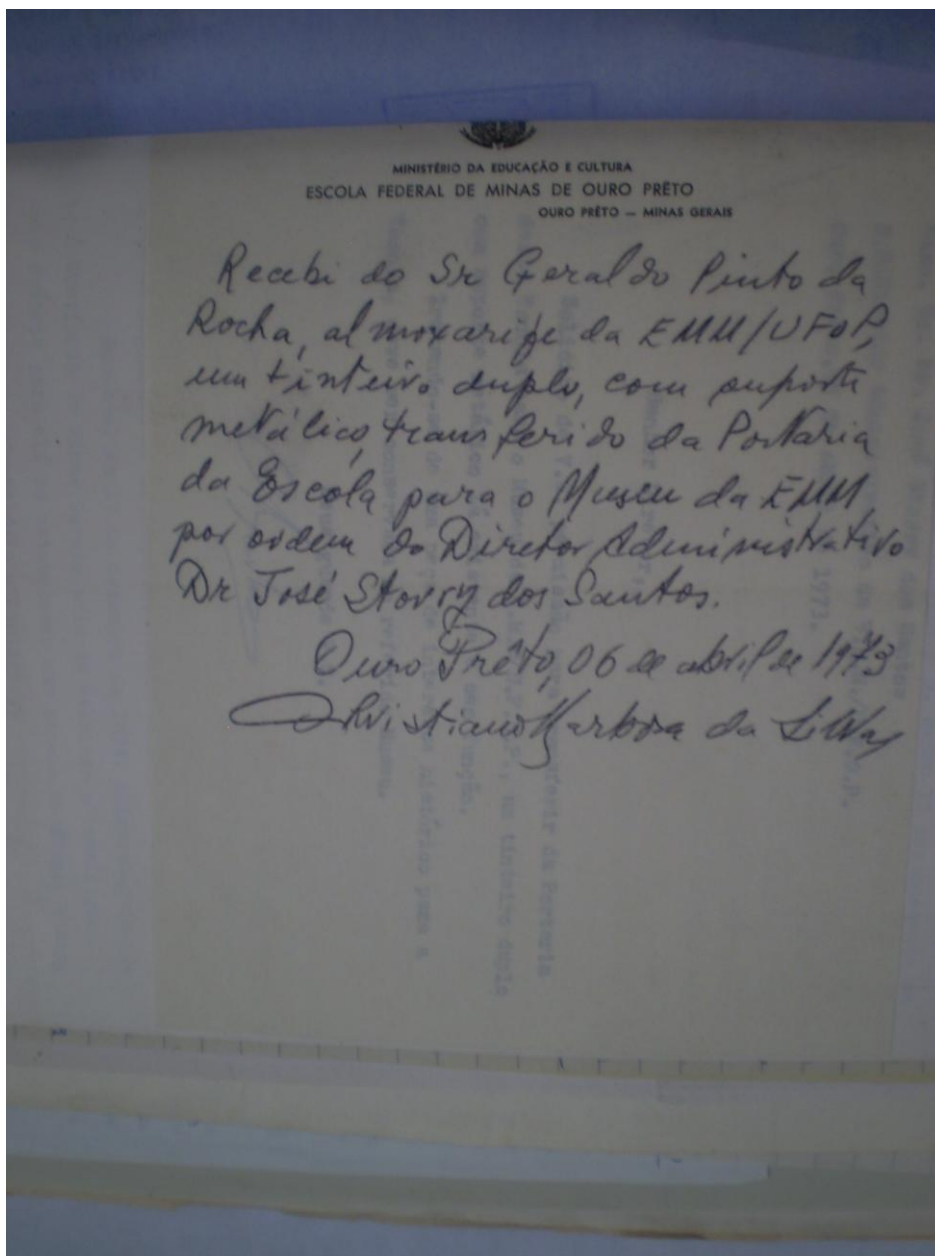 MINISTÉRIO DA EDUCAÇÃO E CULTURA
ESCOLA FEDERAL DE MINAS DE OURO PRÊTO
OURO PRÊTO — MINAS GERAIS
Recebi do Sr Geraldo Pinto da
Rocha, almoxarife da EMM/UFOP,
um tinteiro duplo, com suporte
metálico, transferido da Portaria
da Escola para o Museu da EMM,
por ordem do Diretor Administrativo
Dr José Storry dos Santos.
Ouro Prêto, 06 de abril de 1973
Christiano Barbosa da Silva